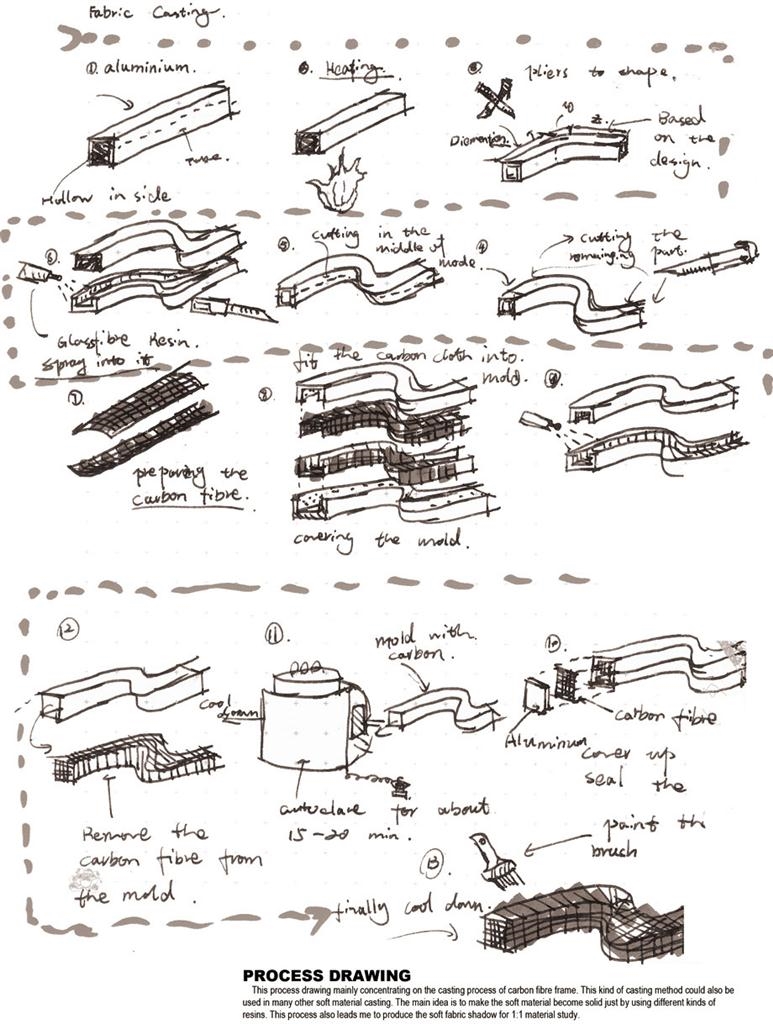 Fabric Casting.
① aluminium.
Hollow in side
② Heating.
③ pliers to shape.
Dimention
Based
on the
design.
⑥
Glassfibre Resin.
spray into it
⑤
cutting in the
middle of
mode.
④
cutting the
remainging part.
⑦
preparing the
carbon fibre.
⑧
fit the carbon cloth into
mold.
covering the mold.
⑨
⑫
Remove the
carbon fibre from
the mold.
⑪
cool
down
mold with
carbon.
autoclave for about
15-20 min.
⑩
Aluminum
carbon fibre
cover up
seal the
⑬
paint the
brush
finally cool down.
PROCESS DRAWING
This process drawing mainly concentrating on the casting process of carbon fibre frame. This kind of casting method could also be
used in many other soft material casting. The main idea is to make the soft material become solid just by using different kinds of
resins. This process also leads me to produce the soft fabric shadow for 1:1 material study.